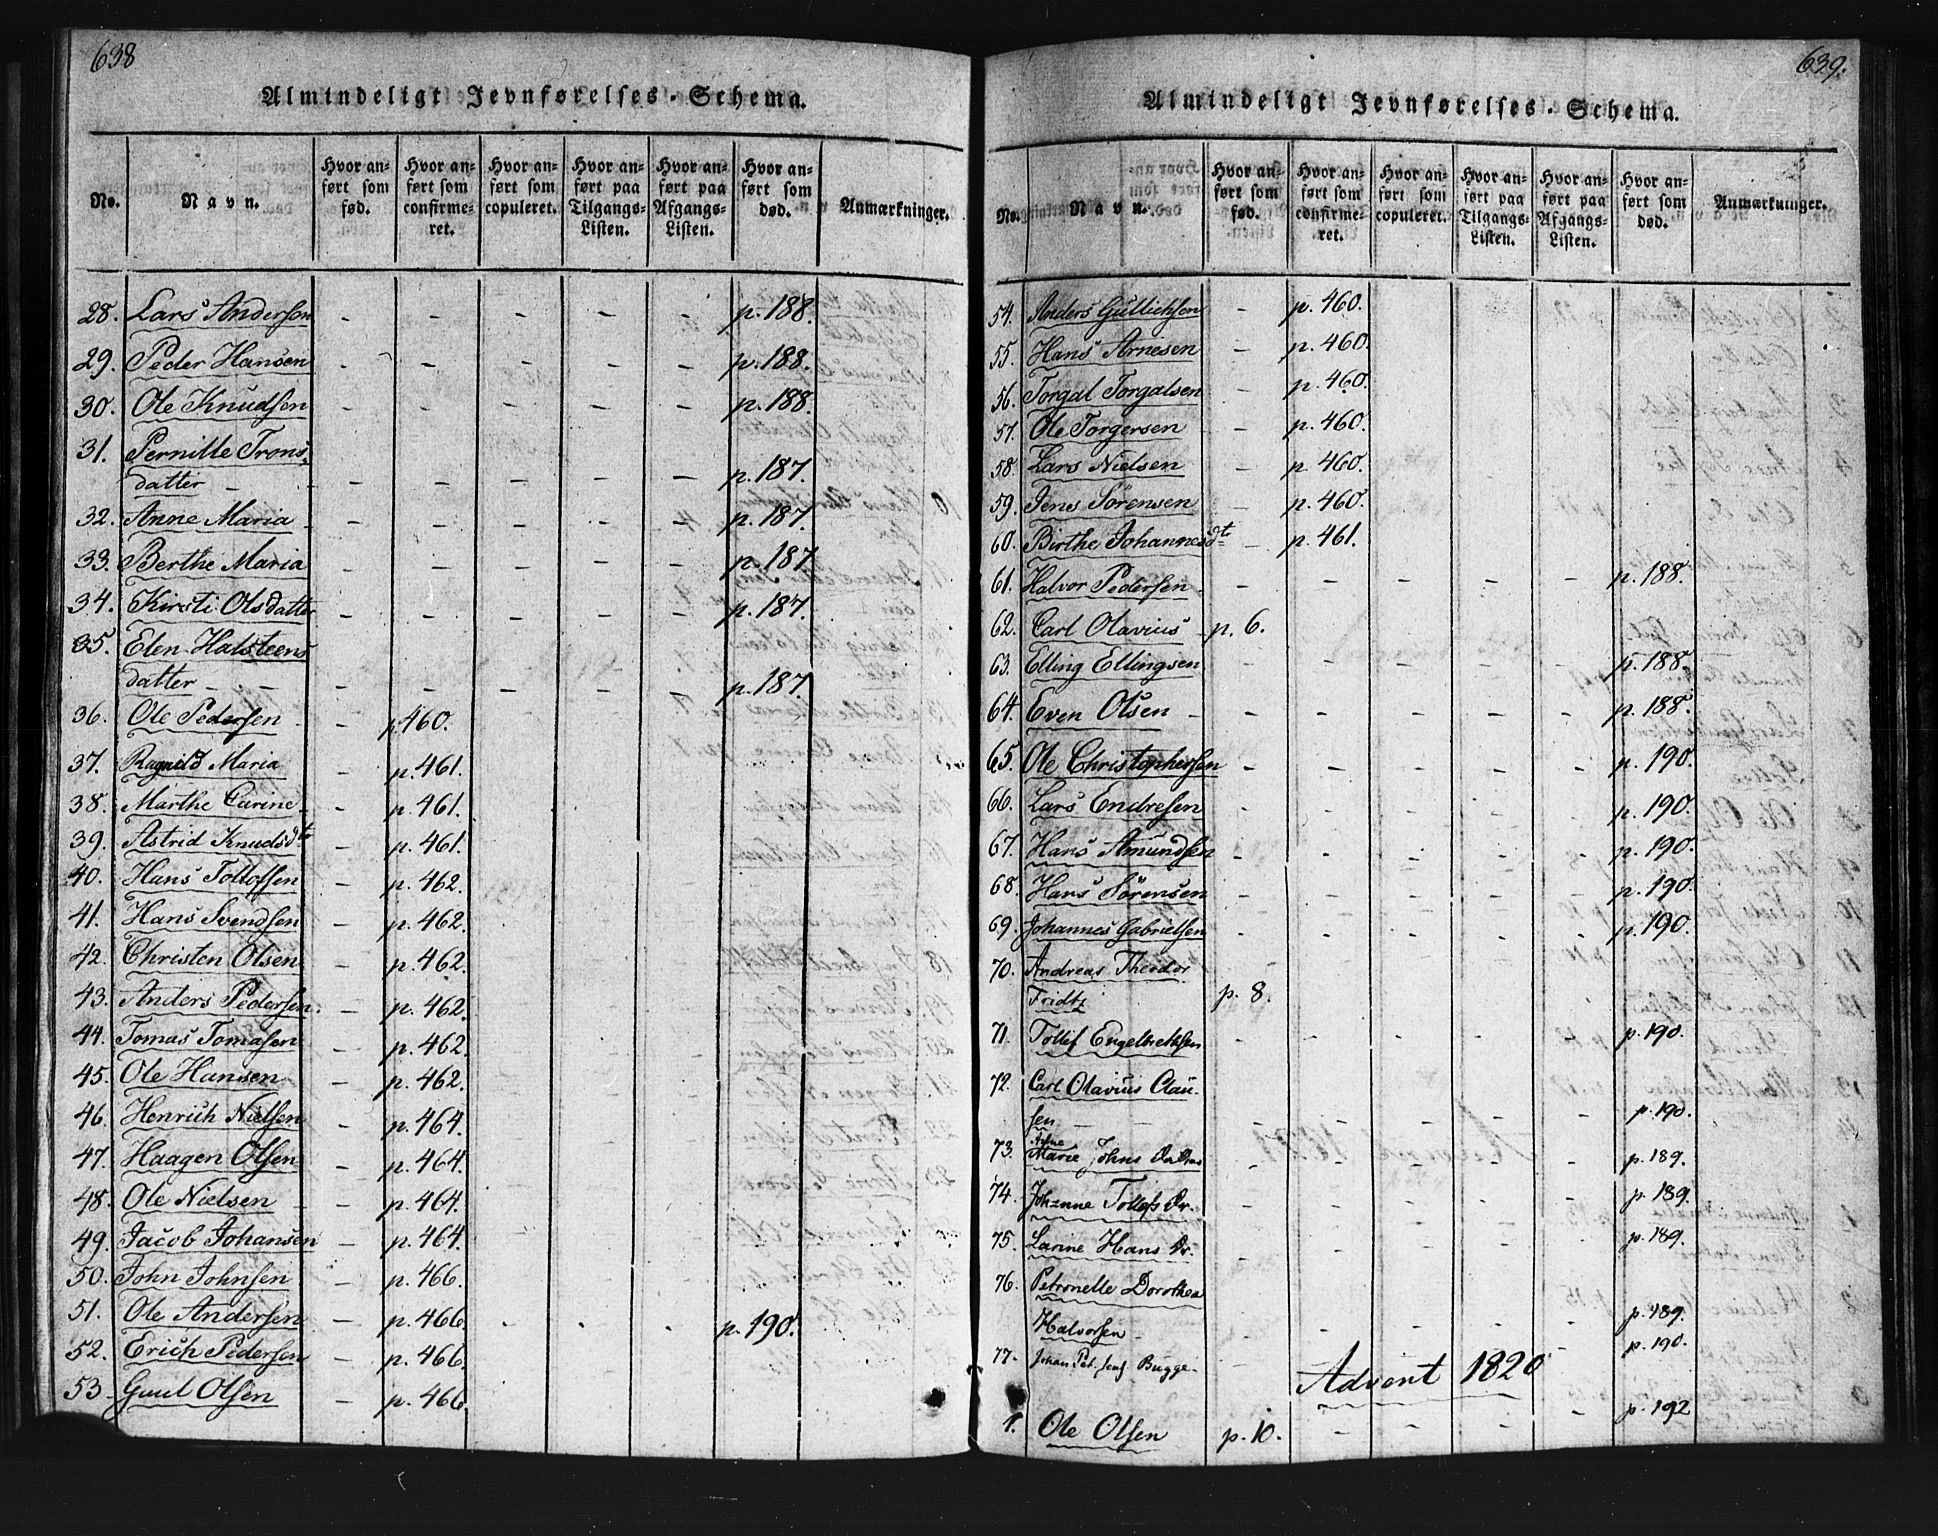 638
Almindeligt Jevnførelses-Schema.
No. Navn. Hvor anført som fød. Hvor anført som confirmeret. Hvor anført som copuleret. Hvor anført paa Tilgangs-Listen. Hvor anført paa Afgangs-Listen. Hvor anført som død. Anmærkninger.
28. Lars Andersen - - - - - p. 188.
29. Peder Hansen - - - - - p. 188.
30. Ole Knudsen - - - - - p. 188.
31. Pernille Trons-
datter - - - - - - p. 187.
32. Anne Maria - - - - - p. 187.
33. Berthe Maria - - - - - p. 187
34. Kirsti Olsdatter - - - - - p. 187.
35. Elen Halsteens
datter - - - - - - - p. 187.
36. Ole Pedersen - p. 460.
37. Ragnild Maria - p. 461.
38. Marthe Carine - p. 461.
39. Astrid Knudsdtr - p. 461.
40. Hans Tollofsen - p. 462.
41. Hans Svendsen - p. 462.
42. Christen Olsen - p. 462.
43. Anders Pedersen. - p. 462.
44. Tomas Tomasen - p. 462.
45. Ole Hansen - p. 462.
46. Henrich Nielsen - p. 464.
47. Haagen Olsen - p. 464.
48. Ole Nielsen - p. 464.
49. Jacob Johansen - p. 464.
50. John Johnsen - p. 466.
51. Ole Andersen - p. 466. - - - p. 190.
52. Erich Pedersen - p. 466.
53 Guul Olsen - p. 466.
639.
Almindeligt Jevnførelses-Schema.
No. Navn. Hvor anført som fød. Hvor anført som confirmeret. Hvor anført som copuleret. Hvor anført paa Tilgangs-Listen. Hvor anført paa Afgangs-Listen. Hvor anført som død. Anmærkninger.
54. Anders Gullichsen - p. 460.
55. Hans Arnesen - p. 460.
56. Torgal Torgalsen - p. 460.
57. Ole Torgersen - p. 460.
58. Lars Nielsen - p 460.
59. Jens Sörensen - p. 460.
60. Birthe Johannesdt - p. 461.
61. Halvor Pedersen - - - - - p. 188.
62. Carl Olavius p. 6.
63. Elling Ellingsen - - - - - p. 188.
64. Even Olsen - - - - - - p. 188.
65. Ole Christophersen - - - - - p. 190.
66. Lars Endresen - - - - - p. 190.
67. Hans Amundsen - - - - - p. 190.
68. Hans Sörensen - - - - - p. 190.
69. Johannes Gabrielsen - - - - - p. 190.
70. Andreas Theodor
Fridtz p. 8.
71. Tollef Engelbrethsen - - - - - p. 190.
72. Carl Olavius Clau-
sen - - - - - - p. 190.
73. Anne
Marie Johns - - - - - p. 189.
74. Johanne Tollefs Dr. - - - - - p. 189.
75. Larine Hans Dr. - - - - - p. 189.
76. Petronelle Dorothea
Halvorsen - - - - - - p. 189.
77. Johan Pet. Bugge - - p. 190.
Advent 1820
- - - p. 192
1. Ole Olsen p. 10.